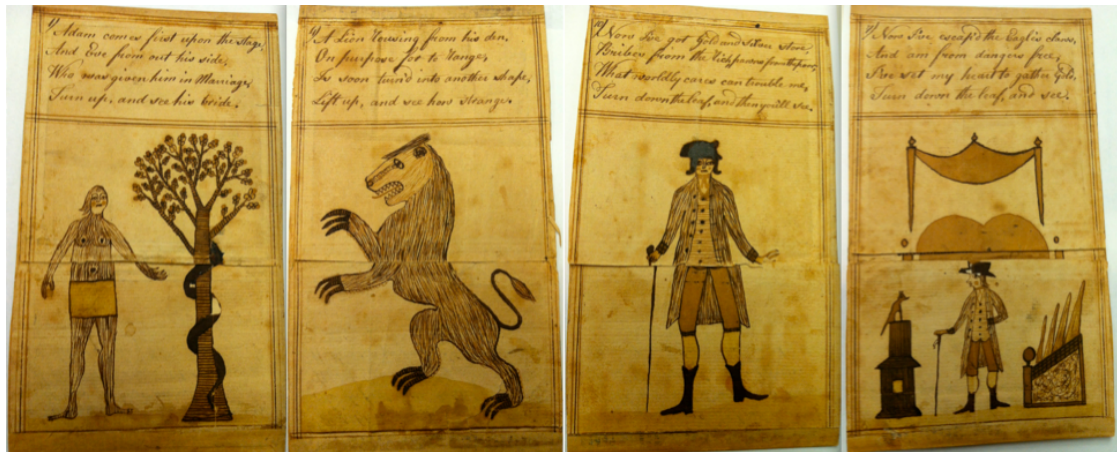 Adam comes first upon the stage,
And Eve from out his side,
Who was given him in Marriage,
Turn up, and see his bride.
A Lion rousing from his den,
On purpose for to range,
Is soon turn'd into another shape,
Lift up, and see how strange.
Now I've got Gold and silver store
Bribes from the Rich from the poor,
What worldly cares can trouble me,
Turn down the leaf, and then you'll see.
Now I've escap'd the Eagle's claws,
And am from dangers free,
I've set my heart to gather Gold,
Turn down the leaf, and see.